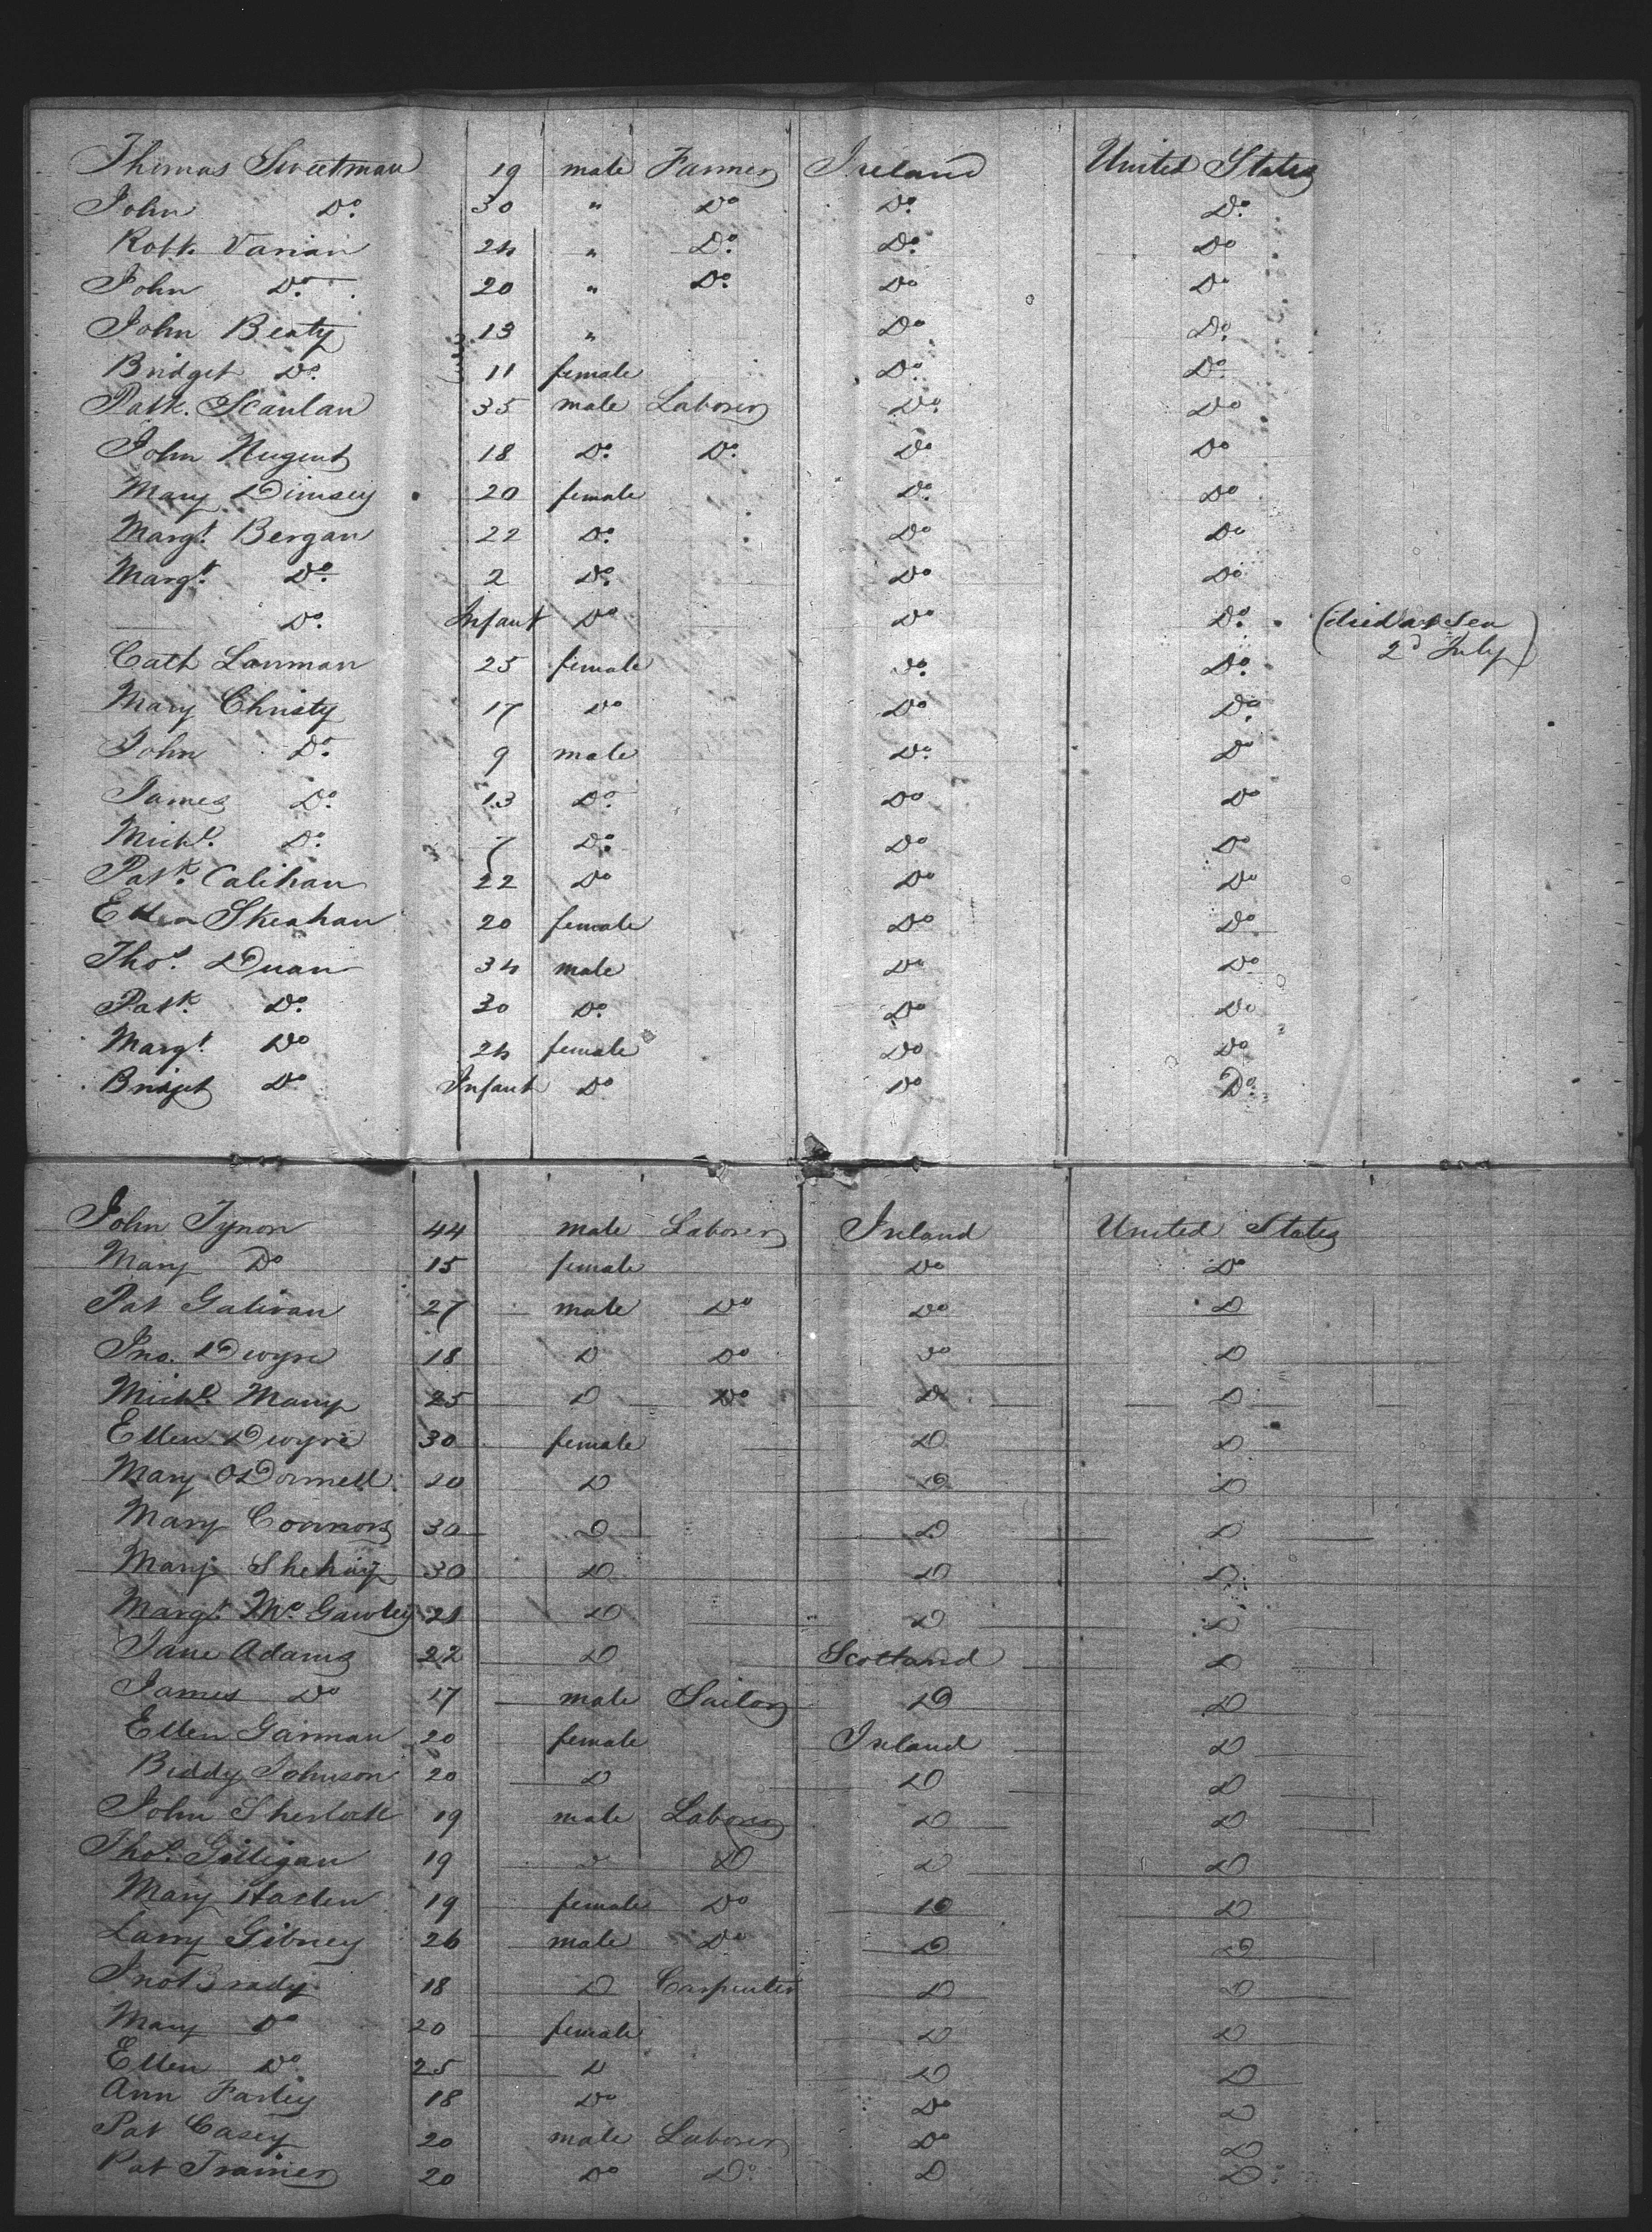 Thomas Sweetman 19 male Farmer Ireland United States
John Do. 30 " Do Do. Do.
Robt. Varian 24 " Do. Do. Do
John Do. 20 " Do. Do Do
John Beaty 13 " Do. Do.
Bridget Do. 11 female Do. Do.
Patk. Scanlan 35 male Laborer Do. Do
John Nugent 18 Do. Do. Do Do
Mary Dimsey 20 female Do. Do
Margt. Bergan 22 Do. Do Do
Margt. Do. 2 Do. Do Do
Do. Infant Do Do Do. (died at Sea
Cath Lanman 25 female Do. Do. 2d July)
Mary Christy 17 Do Do Do.
John Do. 9 male Do. Do
James Do. 13 Do. Do Do
Michl. Do. 7 Do. Do Do
Patk. Calihan 22 Do Do Do
Ellen Sheahan 20 female Do Do.
Thos. Duan 34 male Do Do
Patk. Do. 30 Do. Do Do
Margt. Do 24 female Do Do
Bridget Do Infant Do Do Do.
John Tynon 44 male Laborer Ireland United States
Mary Do 15 female Do Do
Pat Galivan 27 male Do Do D
Jno. Dwyre 18 D Do Do D
Michl. Many 25 D Do D D
Ellen Dwyre 30 female D D
Mary ODonnell 20 D D D
Mary Connors 30 D D D
Mary Shehay 30 D D D
Margt. Mc. Gawley 21 D D D
Jane Adams 22 D Scotland D
James Do 17 male Sailor D D
Ellen Garman 20 female Ireland D
Biddy Johnson 20 D D D
John Sherlock 19 male Laborer D D
Thos. Gilligan 19 D D D D
Mary Harten 19 female Do D D
Larry Gibney 26 male Do D D
Jno Brady 18 D Carpenter D D
Mary Do 20 female D D
Ellen Do. 25 D D D
Ann Farley 18 Do Do D
Pat Casey 20 male Laborer Do D
Pat Trainer 20 Do Do. D D.